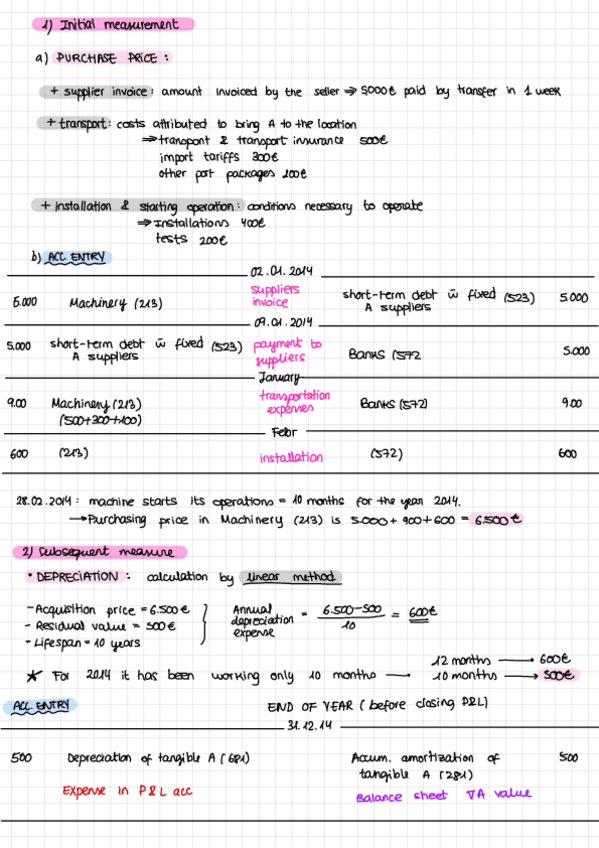 1) Initial measurement
a) PURCHASE PRICE :
+ supplier invoice : amount invoiced by the seller ⇒ 5000€ paid by transfer in 1 week
+ transport : costs attributed to bring A to the location
⇒ transport & transport insurance 500€
import tariffs 300€
other port packages 100€
+ installation & starting operation : conditions necessary to operate
⇒ Installations 400€
tests 200€
b) ACC. ENTRY
02.01.2014
5.000 Machinery (213) suppliers invoice short-term debt w̄ fixed A suppliers (523) 5.000
09.01.2014
5.000 short-term debt w̄ fixed A suppliers (523) payment to suppliers Banks (572 5.000
January
9.00 Machinery (213) transportation expenses Banks (572) 9.00
(500+300+100)
Febr
600 (213) installation (572) 600
28.02.2014 : machine starts its operations = 10 months for the year 2014.
→ Purchasing price in Machinery (213) is 5.000 + 900 + 600 = 6.500€
2) Subsequent measure
• DEPRECIATION : calculation by linear method
- Acquisition price = 6.500€
- Residual value = 500€
- Lifespan = 10 years
Annual depreciation expense = 6.500-500 / 10 = 600€
★ For 2014 it has been working only 10 months → 12 months → 600€
10 months → 500€
ACC. ENTRY END OF YEAR ( before closing P&L)
31.12.14
500 Depreciation of tangible A (681) Accum. amortization of tangible A (281) 500
Expense in P&L acc Balance sheet ∇A value